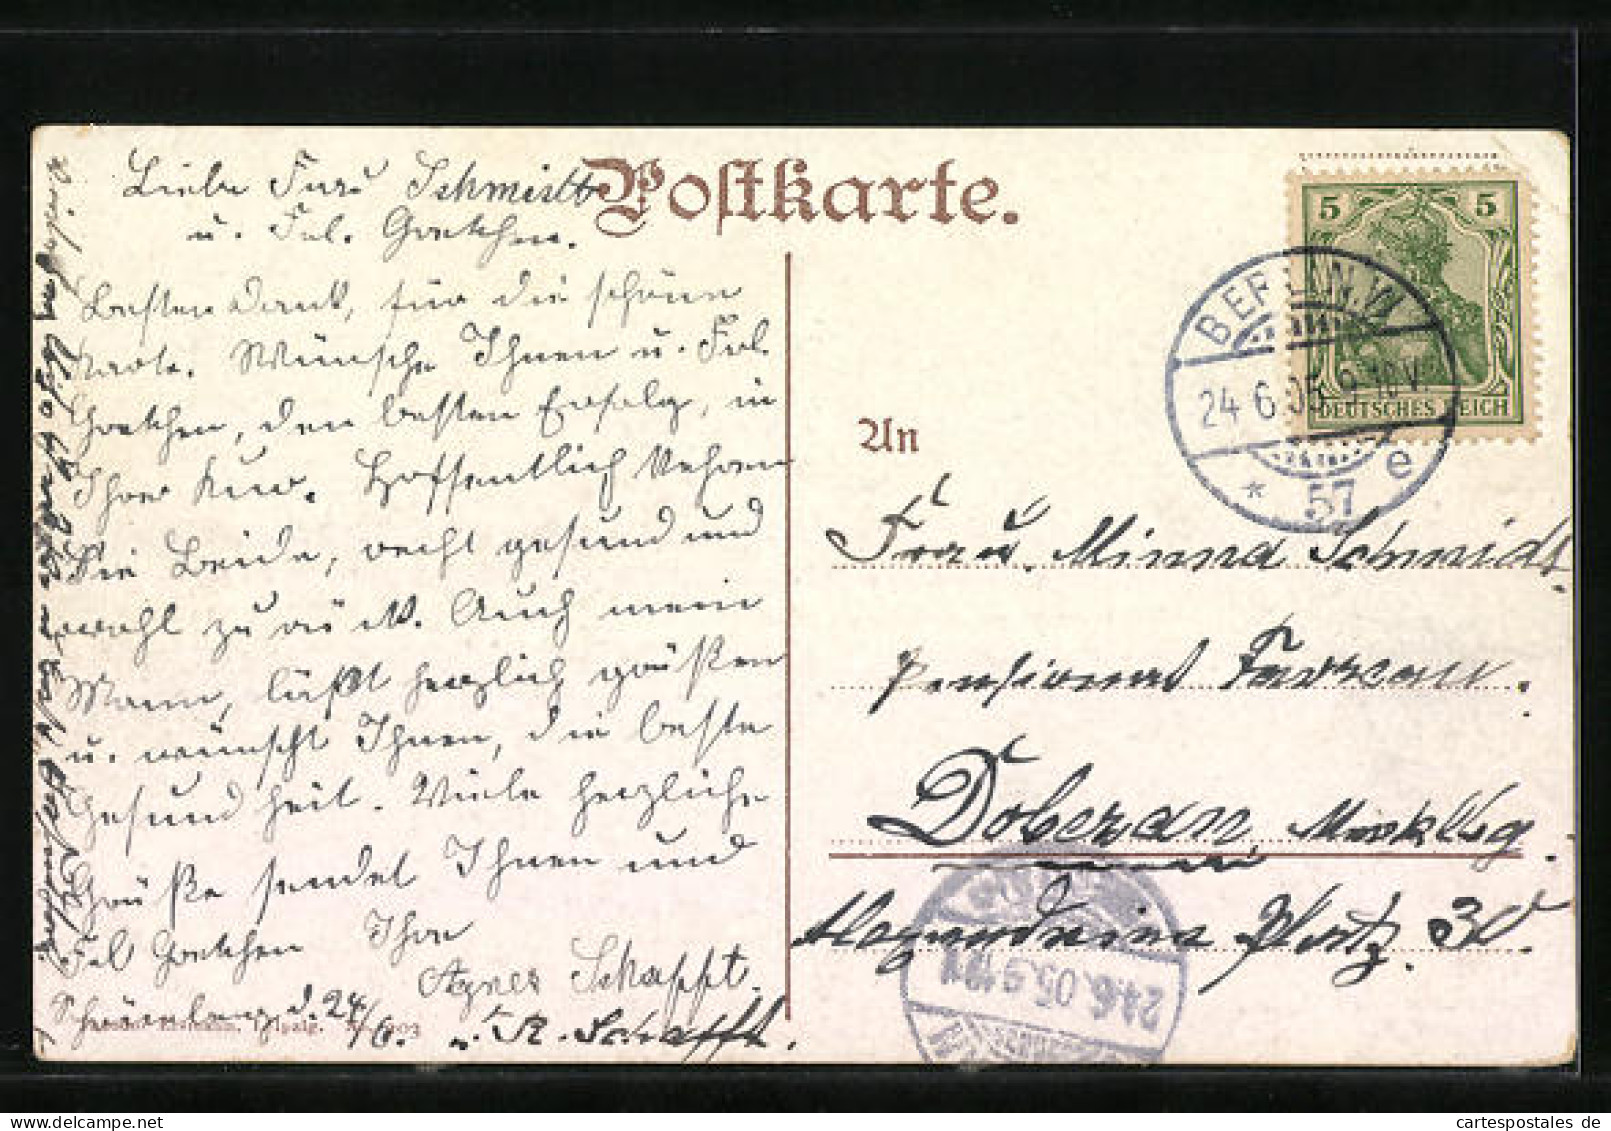 Postkarte.
Liebe Frau Schmidt
u. Frl. Gretchen.
Besten Dank, für die schöne
Karte. Wünsche Ihnen u. Frl.
Gretchen, den besten Erfolg, in
Ihrer Kur. Hoffentlich kehren
Sie Beide, recht gesund und
wohl zurück. Auch mein
Mann, läßt herzlich grüßen
u. wünscht Ihnen, die beste
Gesundheit. Viele herzliche
Grüße sendet Ihnen und
Frl Gretchen Ihre
Agnes Schafft.
Schöneberg d. 24/6. u. R. Schafft.
5 5
DEUTSCHES REICH
BERLIN.W.
24.6.05.9-10V.
* 57 e
An
Frau Minna Schmidt.
Pensionat
Doberan, Mecklbg.
Platz. 3
24.6.05.9-10V